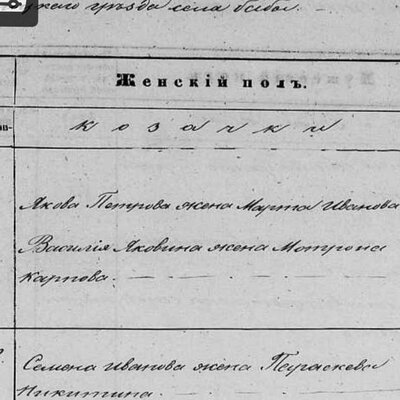 уѣзда села
Женскій полъ.
козачки
Якова Петрова жена Марта Иванова
Василія Яковина жена Мотрона
Карпова.
Семена Иванова жена Параскева
Никитина.